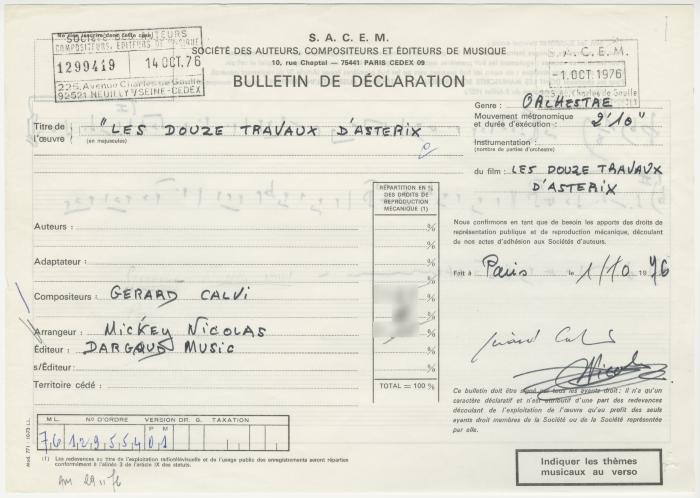 No rien inscrire dans cette case
SOCIÉTÉ DES AUTEURS
COMPOSITEURS, EDITEURS DE MUSIQUE
1299419 14 OCT. 76
225, Avenue Charles de Gaulle
92521 NEUILLY S/SEINE-CEDEX
S. A. C. E. M.
SOCIÉTÉ DES AUTEURS, COMPOSITEURS ET ÉDITEURS DE MUSIQUE
10, rue Chaptal — 75441 PARIS CEDEX 09
BULLETIN DE DÉCLARATION
S. A. C. E. M.
- 1. OCT. 1976
Charles de Gaulle
Genre : ORCHESTRE
Mouvement métronomique
et durée d'exécution : 2'10"
Instrumentation :
(nombre de parties d'orchestre)
du film : LES DOUZE TRAVAUX
D'ASTERIX
Titre de l'œuvre : "LES DOUZE TRAVAUX D'ASTERIX
(en majuscules)
RÉPARTITION EN %
DES DROITS DE
REPRODUCTION
MÉCANIQUE (1)
Auteurs : %
%
Adaptateur : %
%
Compositeurs : GERARD CALVI %
%
Arrangeur : MICKEY NICOLAS
Éditeur : DARGAUD MUSIC %
s/Éditeur : %
Territoire cédé : TOTAL = 100 %
Nous confirmons en tant que de besoin les apports des droits de
représentation publique et de reproduction mécanique, découlant
de nos actes d'adhésion aux Sociétés d'auteurs.
Fait à Paris le 1/10 1976
Ce bulletin doit être signé par tous les ayants droit : il n'a qu'un
caractère déclaratif et n'est attributif d'une part des redevances
découlant de l'exploitation de l'œuvre qu'au profit des seuls
ayants droit membres de la Société ou de la Société représentée
par elle.
M L. N° D'ORDRE VERSION DR. G. TAXATION
P M
7 6 1 2 9 5 5 4 0 1
(1) Les redevances au titre de l'exploitation radiotélévisuelle et de l'usage public des enregistrements seront réparties
conformément à l'alinéa 3 de l'article IX des statuts.
Indiquer les thèmes
musicaux au verso